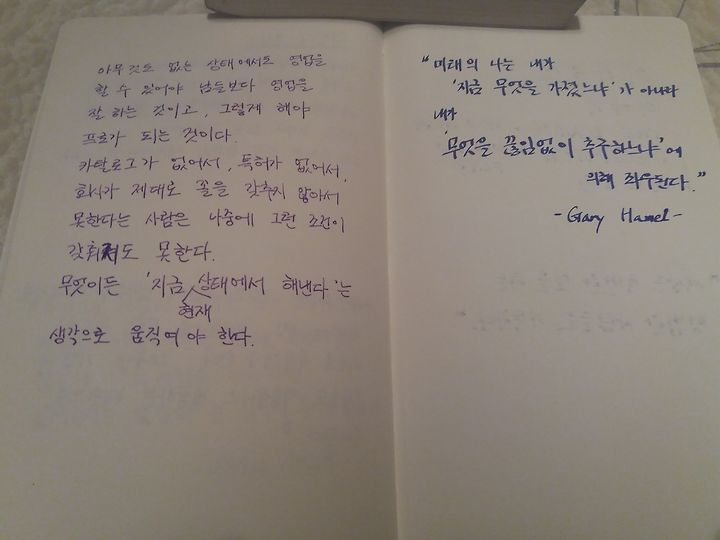 아무것도 없는 상태에서도 영업을
할 수 있어야 남들보다 영업을
잘 하는 것이고, 그렇게 해야
프로가 되는 것이다.
카탈로그가 없어서, 특허가 없어서,
회사가 제대로 꼴을 갖추지 않아서
못한다는 사람은 나중에 그런 조건이
갖춰져도 못한다.
무엇이든 '지금 상태에서 해낸다'는
현재
생각으로 움직여야 한다.
"미래의 나는 내가
'지금 무엇을 가졌느냐'가 아니라
내가
'무엇을 끊임없이 추구하느냐'에
의해 좌우된다."
- Gary Hamel -